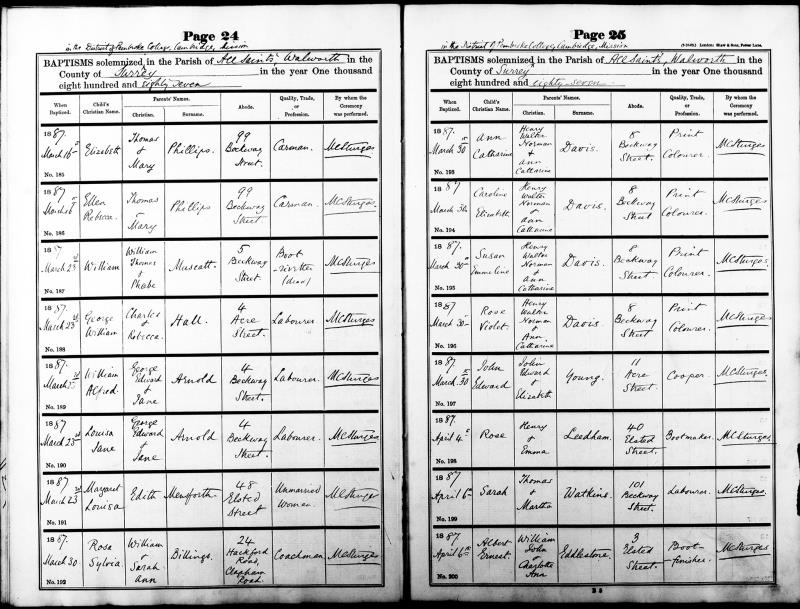 Page 24
in the District of Pembroke College, Cambridge, Mission
BAPTISMS solemnized in the Parish of All Saints', Walworth in the
County of Surrey in the year One thousand
eight hundred and eighty seven
When Baptized. Child's Christian Name. Parents' Names. Christian. Surname. Abode. Quality, Trade, or Profession. By whom the Ceremony was performed.
1887. March 16 No. 185 Elizabeth Thomas & Mary Phillips. 99 Beckway Street. Carman. MCSturges
1887 March 16 No. 186 Ellen Rebecca. Thomas & Mary Phillips 99 Beckway Street. Carman. MCSturges
1887 March 23rd No. 187 William William Thomas & Phabe Muscatt. 5 Beckway Street. Boot (dead) MCSturges
1887. March 23rd No. 188 George William Charles & Rebecca. Hall. 4 Acre Street. Labourer MCSturges
1887. March 23rd No. 189 William Alfred. George Edward & Jane Arnold 4 Beckway Street. Labourer. MCSturges
1887 March 23rd No. 190 Louisa Jane George Edward & Jane Arnold 4 Beckway Street. Labourer. MCSturges
1887 March 23rd No. 191 Margaret Louisa Edith Menforth. 48 Elsted Street Unmarried Woman. MCSturges
1887. March 30. No. 192 Rosa Sylvia. William & Sarah Ann Billings. 24 Hackford Road, Clapham Road. Coachman MCSturges
Page 25
in the District of Pembroke College, Cambridge, Mission
London: Shaw & Sons, Fetter Lane.
BAPTISMS solemnized in the Parish of All Saints', Walworth in the
County of Surrey in the year One thousand
eight hundred and eighty seven
When Baptized. Child's Christian Name. Parents' Names. Christian. Surname. Abode. Quality, Trade, or Profession. By whom the Ceremony was performed.
1887. March 30 No. 193 Ann Catharine Henry Walter Norman & Ann Catharine Davis. 8 Beckway Street. Print Colourer. MCSturges
1887 March 30 No. 194 Caroline Elizabeth Henry Walter Norman & Ann Catharine Davis. 8 Beckway Street Print Colourer. MCSturges
1887. March 30 No. 195 Susan Emmeline Henry Walter Norman & Ann Catharine Davis. 8 Beckway Street Print Colourer. MCSturges
1887 March 30 No. 196 Rose Violet. Henry Walter Norman & Ann Catharine Davis. 8 Beckway Street Print Colourer. MCSturges
1887 March 30 No. 197 John Edward John Edward & Elizabeth Young. 11 Acre Street. Cooper. MCSturges
1887. April 4 No. 198 Rose Henry & Emma Leedham. 40 Elsted Street. Bootmaker. MCSturges
1887 April 6 No. 199 Sarah Thomas & Martha Watkins. 101 Beckway Street. Labourer. MCSturges
1887 April 6 No. 200 Albert Ernest. William John & Charlotte Ann Eddlestone. 3 Elsted Street. Boot-finisher. MCSturges